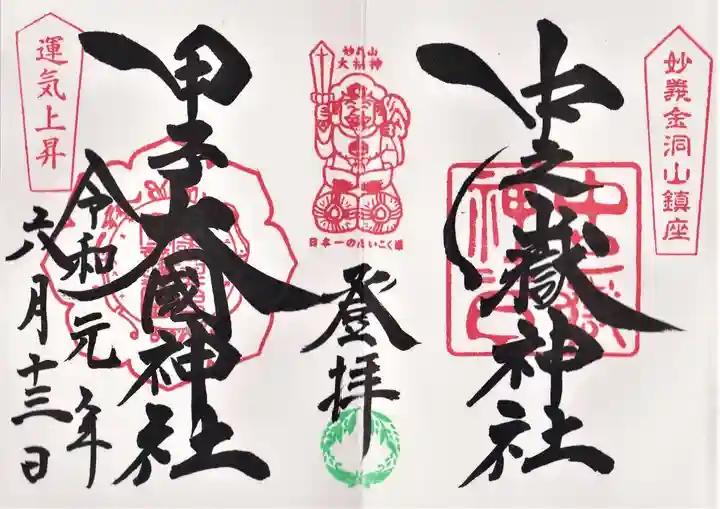 妙義金洞山鎮座
中之嶽神社
妙義山
大神
日本一のだいこく様
登拝
甲子大國神社
運気上昇
令和元年
六月十三日